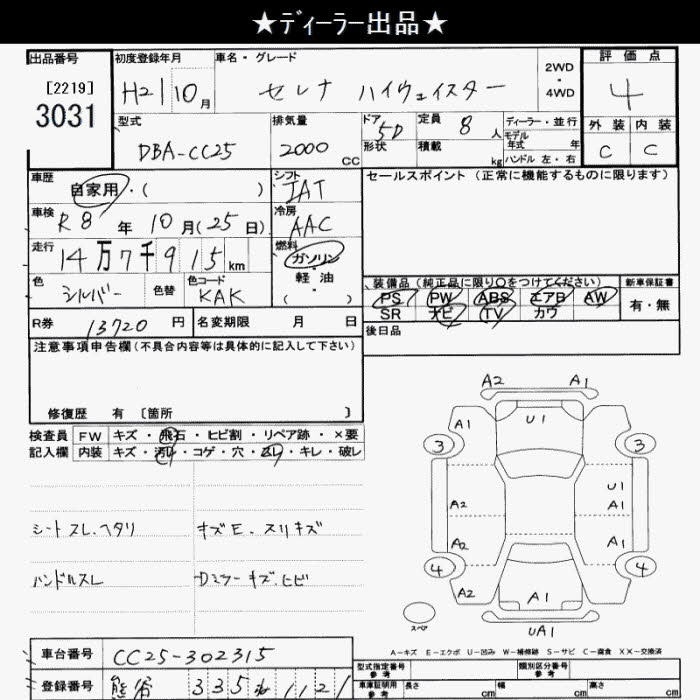 ★ディーラー出品★
出品番号
[2219]
3031
初度登録年月
H21 10月
車名・グレード
セレナ ハイウェイスター
2WD
・
4WD
評価点
4
外装 内装
C C
型式
DBA-CC25
排気量
2000 CC
ドア 5D
形状
定員 8 人
積載 kg
ディーラー・並行
モデル年式 年
ハンドル 左・右
車歴
自家用・( )
シフト
IAT
車検
R8年10月(25日)
冷房
AAC
走行
14万7千915km
燃料
ガソリン
・
軽・油
( )
色
シルバー
色替
色コード
KAK
R券 13720円
名変期限 月 日
セールスポイント (正常に機能するものに限ります)
装備品 (純正品に限り○をつけてください)
新車保証書
PS PW ABS エアB AW
有・無
SR ナビ TV カワ
後日品
注意事項申告欄(不具合内容等は具体的に記入して下さい)
修復歴 有 [箇所 ]
検査員 FW キズ・飛石・ヒビ割・リペア跡・×要
記入欄 内装 キズ・汚れ・コゲ・穴・スレ・キレ・破レ
シートスレ.ヘタリ
キズE.スリキズ
ハンドルスレ
Dミラーキズ.ヒビ
A2 A1
A1 U1
3 3
U1
A2 A1
A2 A1
4 4
A2 A1
スペア
UA1
A-キズ E-エクボ U-凹み W-補修跡 S-サビ C-腐食 XX-交換済
車台番号 CC25-302315
型式指定番号 参考
類別区分番号 参考
登録番号 熊谷 335 1121
車庫証明用 参考
長さ cm 幅 cm 高さ cm